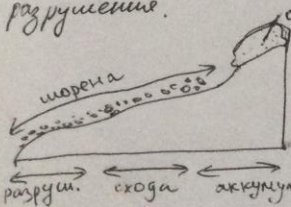 разрушения.
морена
разруш. схода аккумул